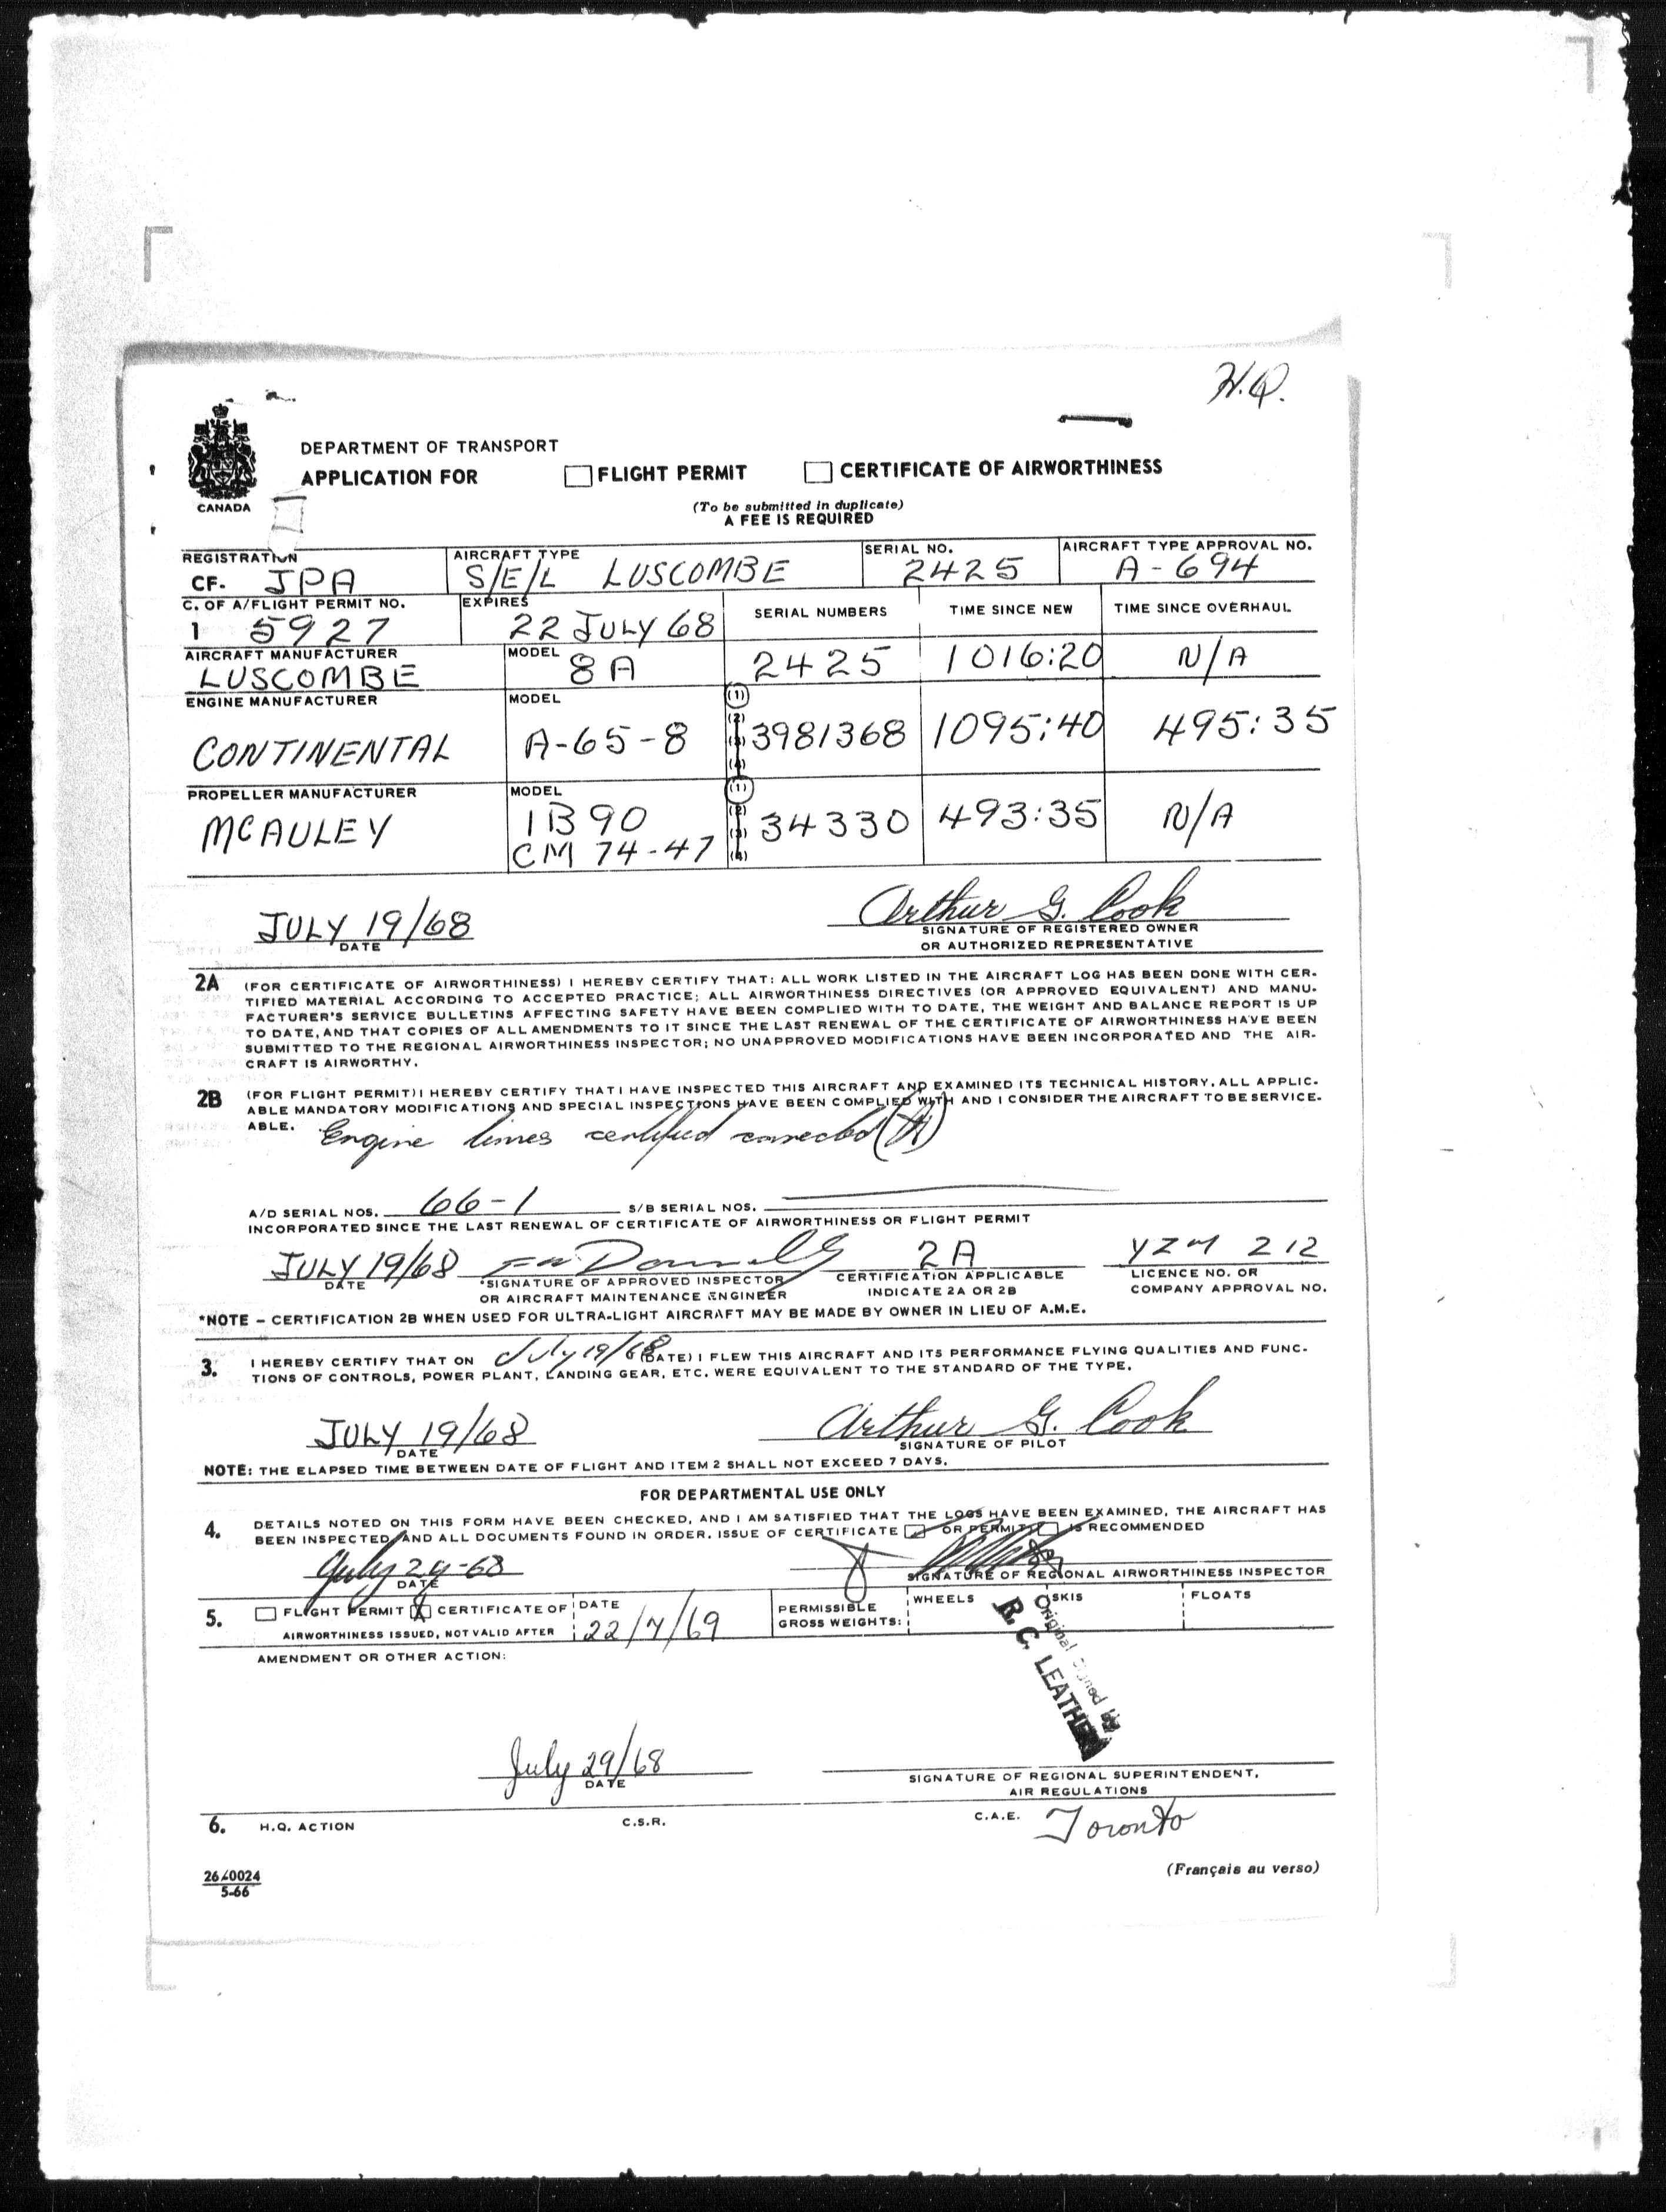 H.Q.
DEPARTMENT OF TRANSPORT
APPLICATION FOR FLIGHT PERMIT CERTIFICATE OF AIRWORTHINESS
CANADA
(To be submitted in duplicate)
A FEE IS REQUIRED
REGISTRATION AIRCRAFT TYPE SERIAL NO. AIRCRAFT TYPE APPROVAL NO.
CF. JPA S/E/L LUSCOMBE 2425 A-694
C. OF A/FLIGHT PERMIT NO. EXPIRES SERIAL NUMBERS TIME SINCE NEW TIME SINCE OVERHAUL
1 5927 22 JULY 68
AIRCRAFT MANUFACTURER MODEL
LUSCOMBE 8A 2425 1016:20 N/A
ENGINE MANUFACTURER MODEL (1)
(2)
CONTINENTAL A-65-8 (3) 3981368 1095:40 495:35
(4)
PROPELLER MANUFACTURER MODEL (1)
MCAULEY 1B90 (2) 34330 493:35 N/A
(3)
CM 74-47 (4)
JULY 19/68 Arthur G. Cook
DATE SIGNATURE OF REGISTERED OWNER
OR AUTHORIZED REPRESENTATIVE
2A (FOR CERTIFICATE OF AIRWORTHINESS) I HEREBY CERTIFY THAT: ALL WORK LISTED IN THE AIRCRAFT LOG HAS BEEN DONE WITH CER-
TIFIED MATERIAL ACCORDING TO ACCEPTED PRACTICE; ALL AIRWORTHINESS DIRECTIVES (OR APPROVED EQUIVALENT) AND MANU-
FACTURER'S SERVICE BULLETINS AFFECTING SAFETY HAVE BEEN COMPLIED WITH TO DATE, THE WEIGHT AND BALANCE REPORT IS UP
TO DATE, AND THAT COPIES OF ALL AMENDMENTS TO IT SINCE THE LAST RENEWAL OF THE CERTIFICATE OF AIRWORTHINESS HAVE BEEN
SUBMITTED TO THE REGIONAL AIRWORTHINESS INSPECTOR; NO UNAPPROVED MODIFICATIONS HAVE BEEN INCORPORATED AND THE AIR-
CRAFT IS AIRWORTHY.
2B (FOR FLIGHT PERMIT) I HEREBY CERTIFY THAT I HAVE INSPECTED THIS AIRCRAFT AND EXAMINED ITS TECHNICAL HISTORY. ALL APPLIC-
ABLE MANDATORY MODIFICATIONS AND SPECIAL INSPECTIONS HAVE BEEN COMPLIED WITH AND I CONSIDER THE AIRCRAFT TO BE SERVICE-
ABLE. Engine times certified corrected
A/D SERIAL NOS. 66-1 S/B SERIAL NOS.
INCORPORATED SINCE THE LAST RENEWAL OF CERTIFICATE OF AIRWORTHINESS OR FLIGHT PERMIT
JULY 19/68 2A YZM 212
DATE *SIGNATURE OF APPROVED INSPECTOR CERTIFICATION APPLICABLE LICENCE NO. OR
OR AIRCRAFT MAINTENANCE ENGINEER INDICATE 2A OR 2B COMPANY APPROVAL NO.
*NOTE – CERTIFICATION 2B WHEN USED FOR ULTRA-LIGHT AIRCRAFT MAY BE MADE BY OWNER IN LIEU OF A.M.E.
3. I HEREBY CERTIFY THAT ON July 19/68 (DATE) I FLEW THIS AIRCRAFT AND ITS PERFORMANCE FLYING QUALITIES AND FUNC-
TIONS OF CONTROLS, POWER PLANT, LANDING GEAR, ETC. WERE EQUIVALENT TO THE STANDARD OF THE TYPE.
JULY 19/68 Arthur G. Cook
DATE SIGNATURE OF PILOT
NOTE: THE ELAPSED TIME BETWEEN DATE OF FLIGHT AND ITEM 2 SHALL NOT EXCEED 7 DAYS.
FOR DEPARTMENTAL USE ONLY
4. DETAILS NOTED ON THIS FORM HAVE BEEN CHECKED, AND I AM SATISFIED THAT THE LOGS HAVE BEEN EXAMINED, THE AIRCRAFT HAS
BEEN INSPECTED AND ALL DOCUMENTS FOUND IN ORDER. ISSUE OF CERTIFICATE OR PERMIT IS RECOMMENDED
July 24-68
DATE SIGNATURE OF REGIONAL AIRWORTHINESS INSPECTOR
5. FLIGHT PERMIT X CERTIFICATE OF DATE PERMISSIBLE WHEELS SKIS FLOATS
AIRWORTHINESS ISSUED, NOT VALID AFTER 22/7/69 GROSS WEIGHTS:
AMENDMENT OR OTHER ACTION:
Original Signed by
R. C. LEATHER
July 29/68
DATE SIGNATURE OF REGIONAL SUPERINTENDENT,
AIR REGULATIONS
6. H.Q. ACTION C.S.R. C.A.E. Toronto
26-0024
5-66
(Français au verso)